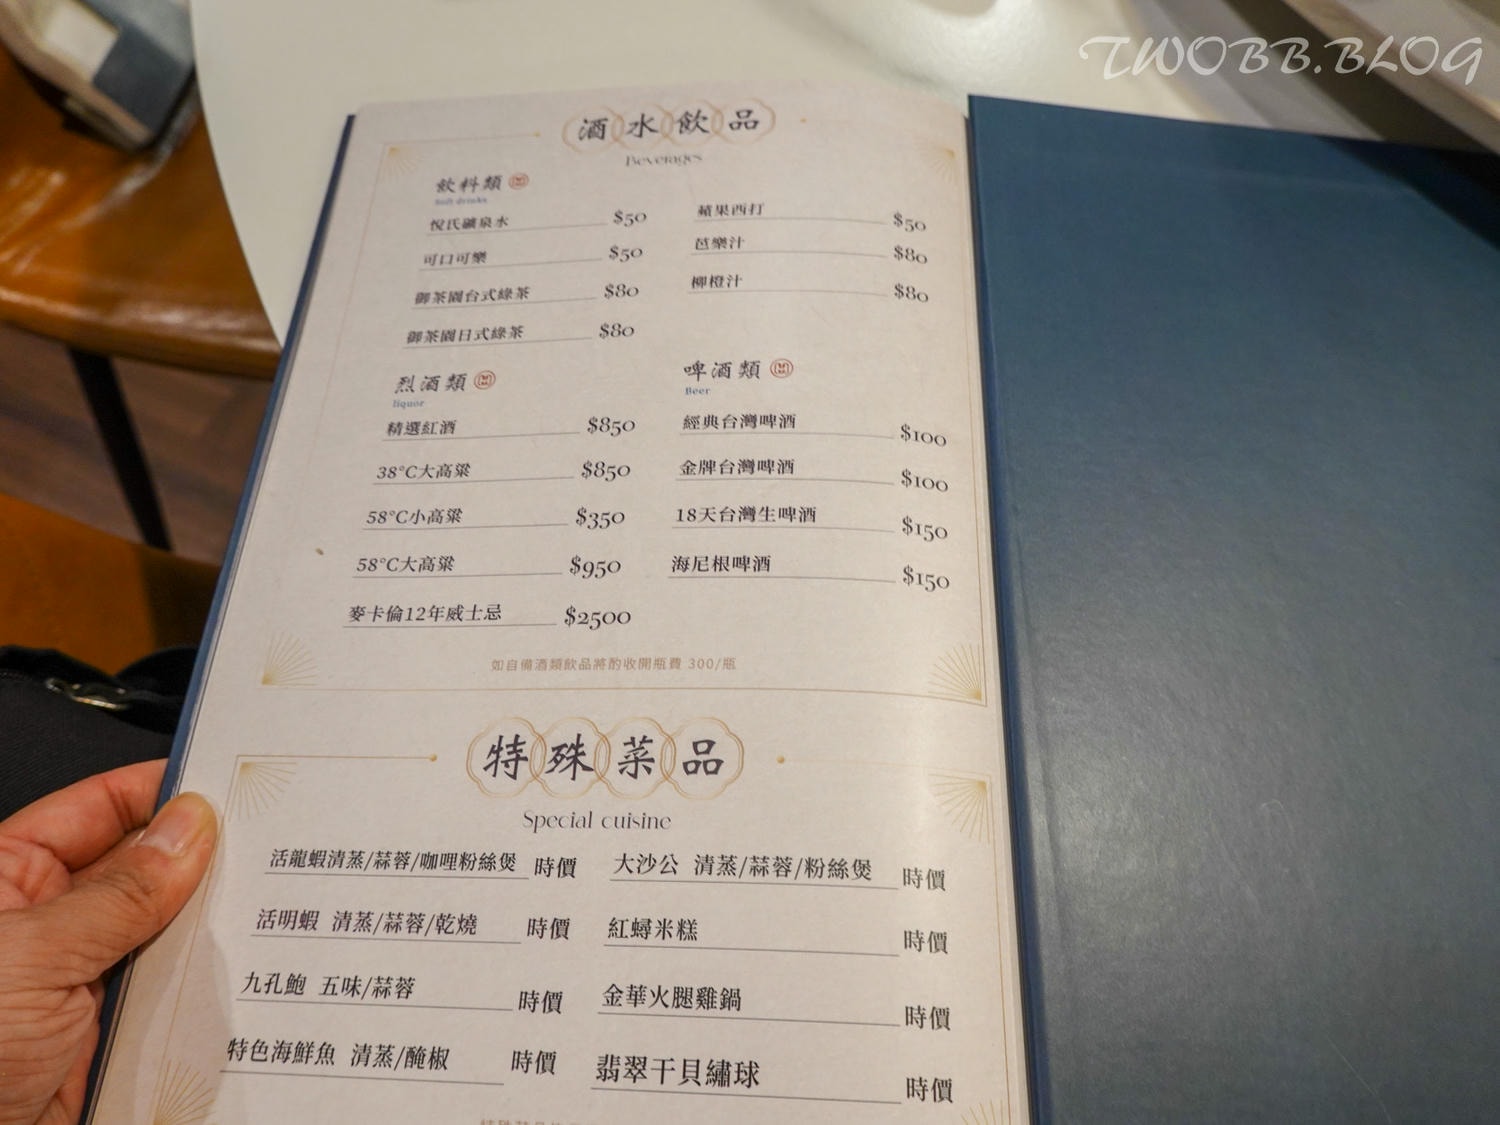 TWOBB.BLOG
酒水飲品
Beverages
飲料類
Soft drinks
悅氏礦泉水 $50
可口可樂 $50
御茶園台式綠茶 $80
御茶園日式綠茶 $80
蘋果西打 $50
芭樂汁 $80
柳橙汁 $80
烈酒類
liquor
精選紅酒 $850
38°C大高粱 $850
58°C小高粱 $350
58°C大高粱 $950
麥卡倫12年威士忌 $2500
啤酒類
Beer
經典台灣啤酒 $100
金牌台灣啤酒 $100
18天台灣生啤酒 $150
海尼根啤酒 $150
如自備酒類飲品將酌收開瓶費 300/瓶
特殊菜品
Special cuisine
活龍蝦清蒸/蒜蓉/咖哩粉絲煲 時價
活明蝦 清蒸/蒜蓉/乾燒 時價
九孔鮑 五味/蒜蓉 時價
特色海鮮魚 清蒸/醃椒 時價
大沙公 清蒸/蒜蓉/粉絲煲 時價
紅蟳米糕 時價
金華火腿雞鍋 時價
翡翠干貝繡球 時價